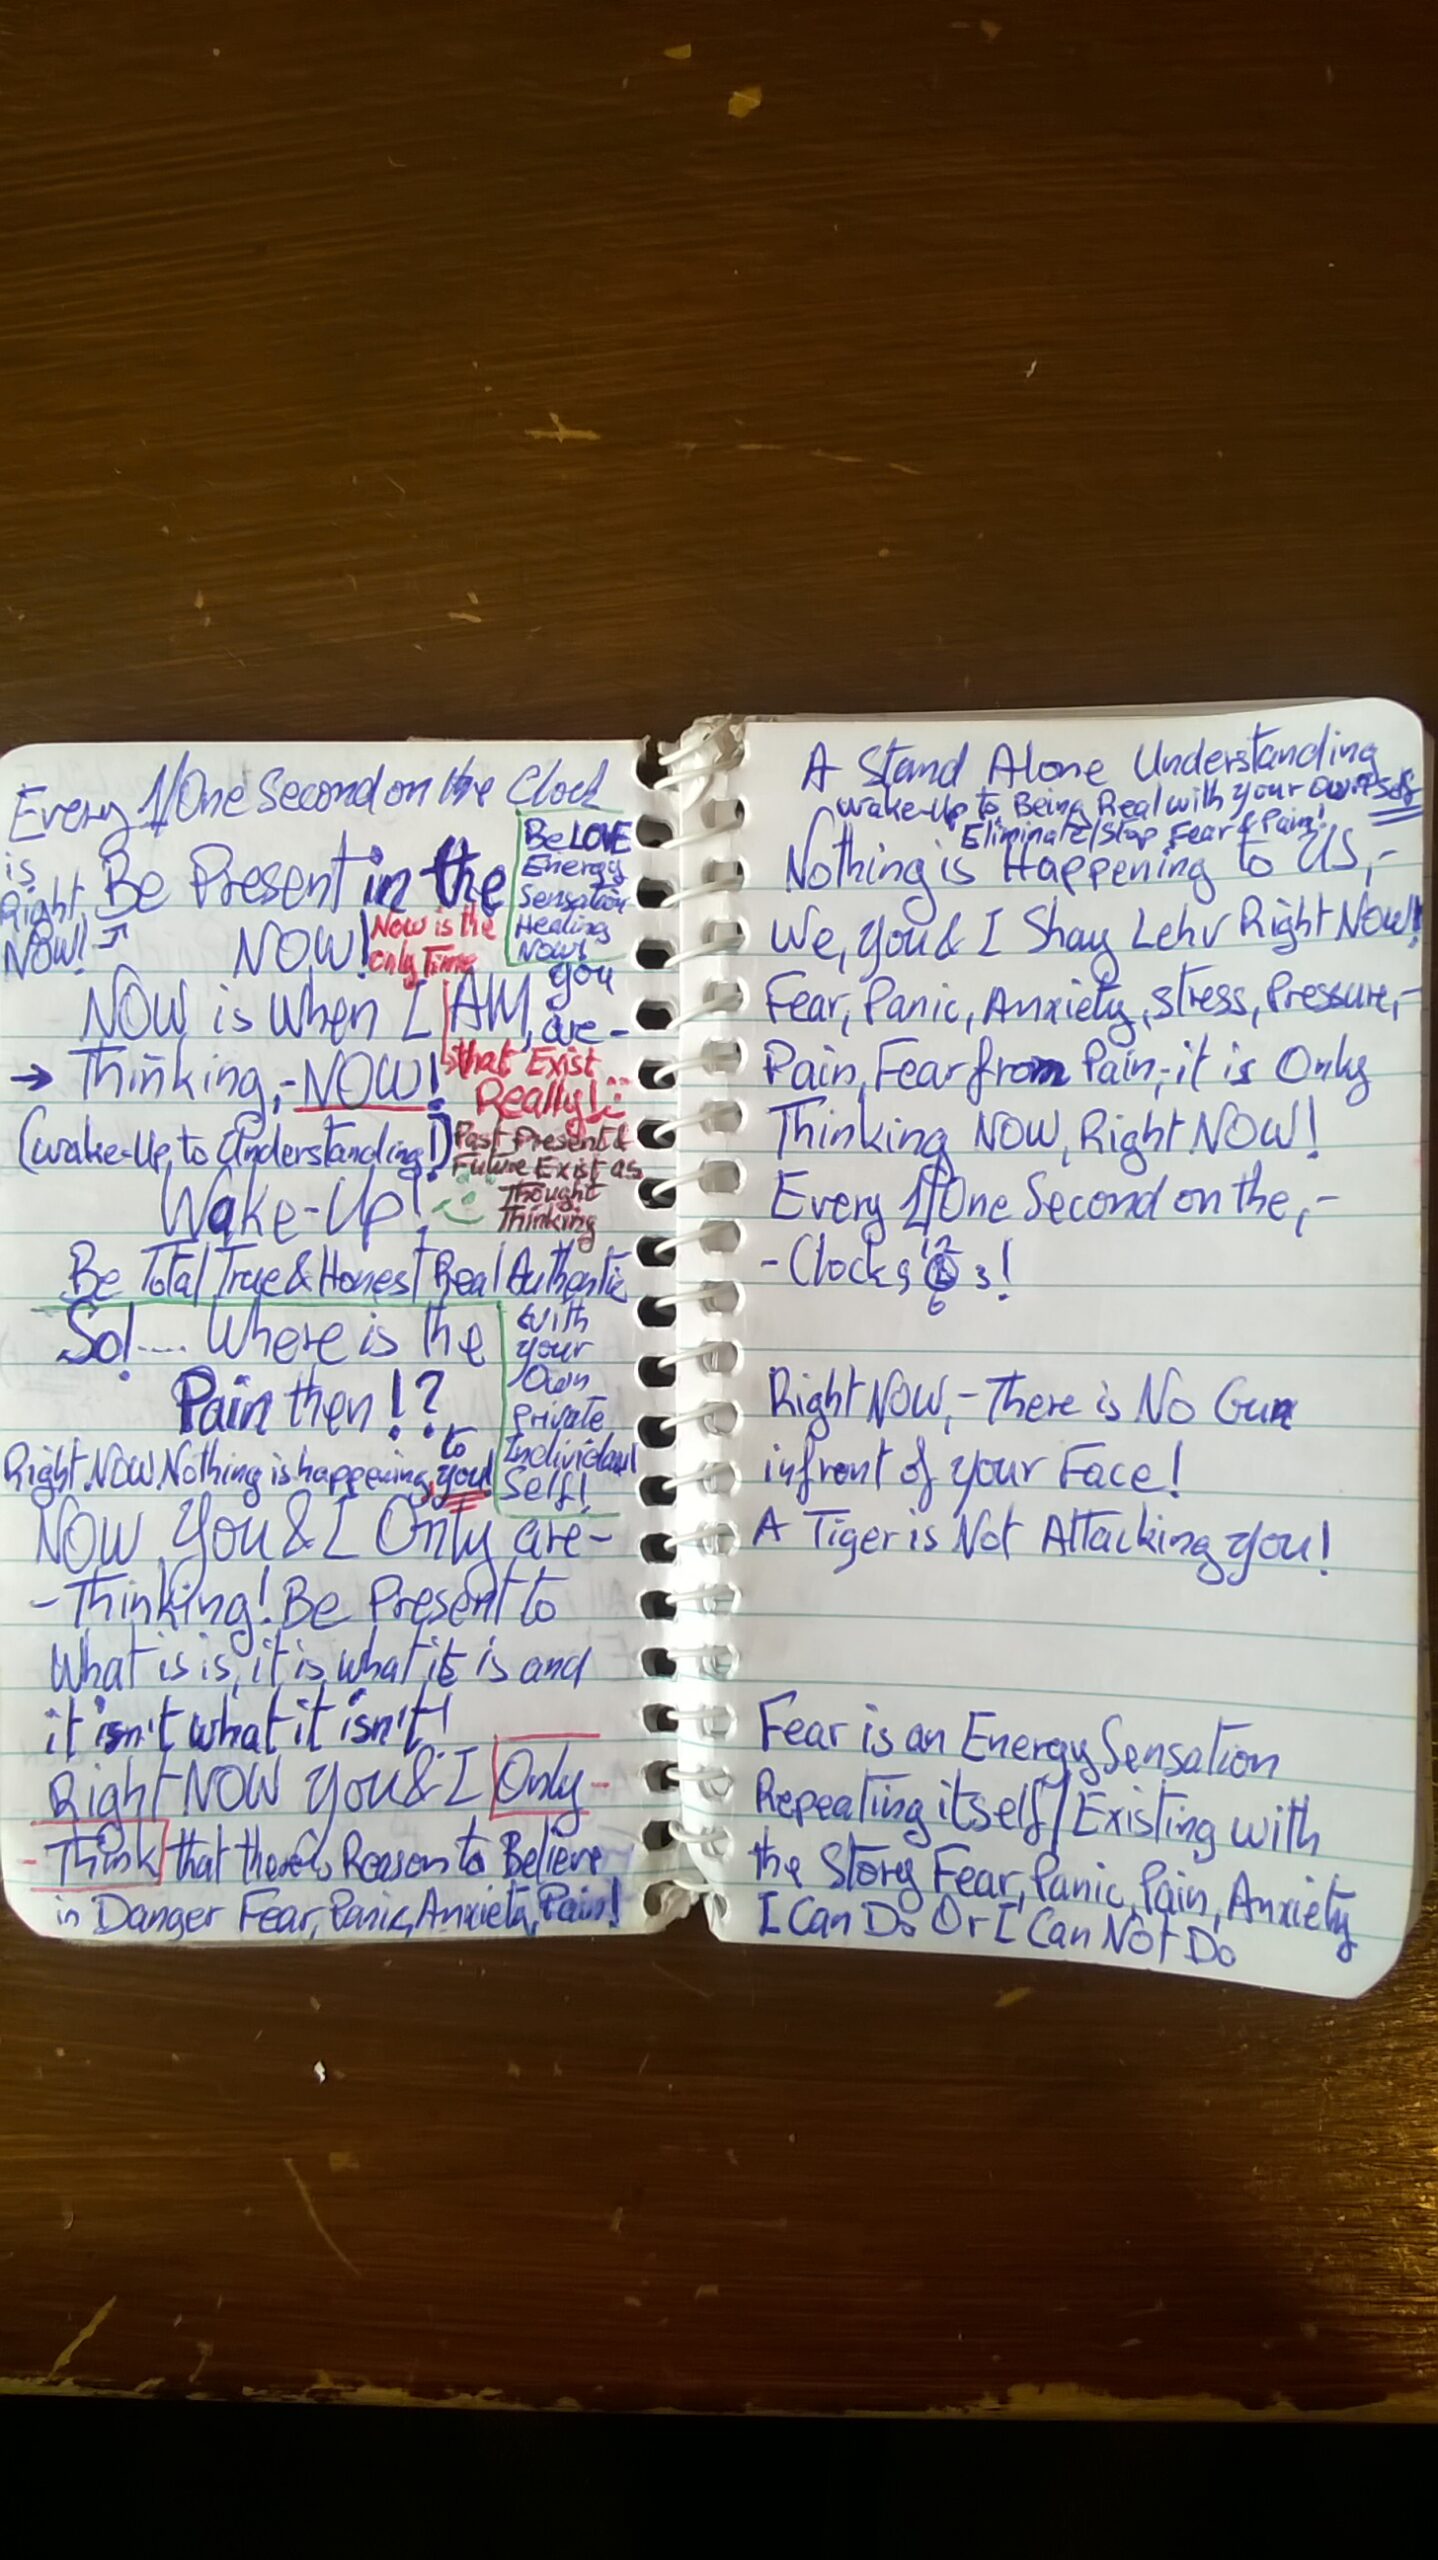 Every 1/One Second on the Clock
is
Right
NOW!
Be Present in the
NOW!
Now is the
only Time
Be LOVE
Energy
Sensation
Healing
Now!
NOW is when I AM, you are -
that Exist
Really!
→ Thinking,- NOW!
(Wake-Up, to Understanding!)
Past Present &
Future Exist as
Thought
Thinking
Wake-Up!
Be Total True & Honest Real Authentic
with
your
Own
private
Individual
Self!
So!.... Where is the
Pain then!?
Right NOW Nothing is happening, to you!
NOW, You & I Only are -
- Thinking! Be Present to
What is is, it is what it is and
it isn't what it isn't!
Right NOW You & I Only -
- Think that there is Reason to Believe
in Danger Fear, Panic, Anxiety, Pain!
A Stand Alone Understanding
Wake-Up to Being Real with your own self
Eliminate/Stop Fear & Pain!
Nothing is Happening to US,-
We, You & I Shay Lehv Right Now!
Fear, Panic, Anxiety, Stress, Pressure,-
Pain, Fear from Pain,-it is Only
Thinking NOW, Right NOW!
Every 1/One Second on the,-
- Clock 9 12 3!
6
Right NOW,- There is No Gun
infront of your Face!
A Tiger is Not Attacking you!
Fear is an Energy Sensation
Repeating itself/Existing with
the Story Fear, Panic, Pain, Anxiety
I Can Do Or I Can Not Do